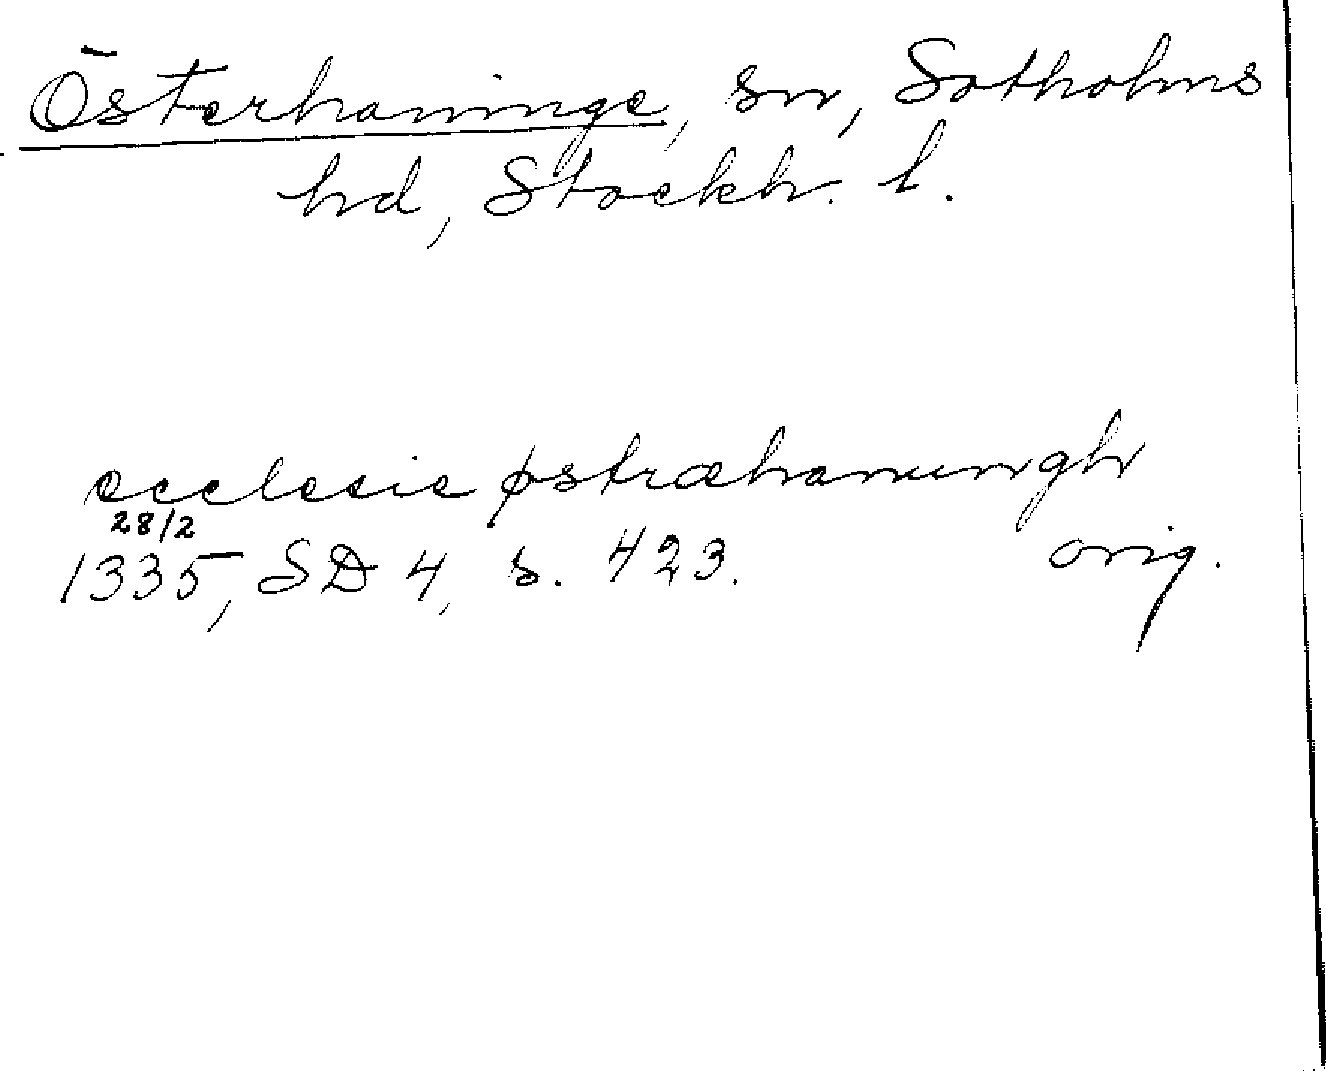 Österhaninge, sn, Sotholms
hd, Stockh. l.
ecclesie østræhanungh
28/2
1335, SD 4, s. 423. orig.